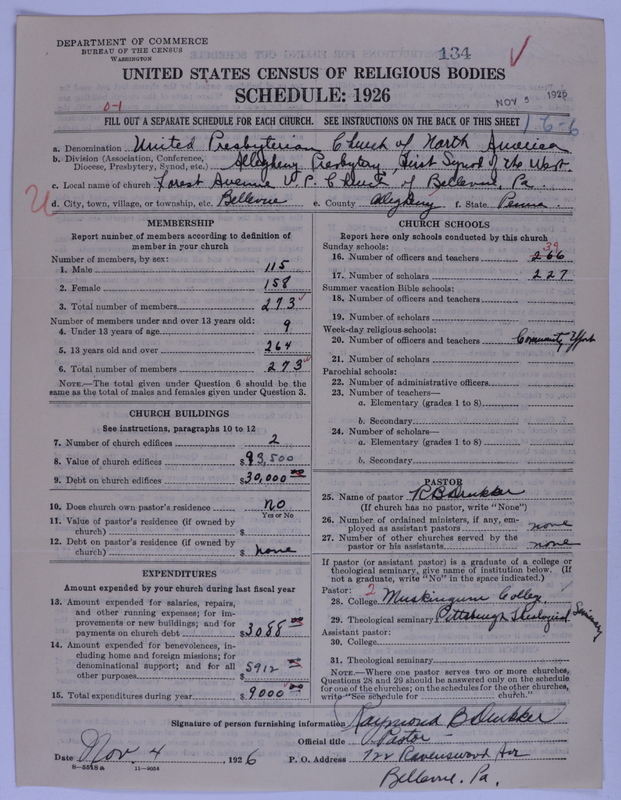 DEPARTMENT OF COMMERCE
BUREAU OF THE CENSUS
WASHINGTON
134
UNITED STATES CENSUS OF RELIGIOUS BODIES
SCHEDULE: 1926
NOV 5 1926
0-1
FILL OUT A SEPARATE SCHEDULE FOR EACH CHURCH. SEE INSTRUCTIONS ON THE BACK OF THIS SHEET
16-6
a. Denomination United Presbyterian Church of North America
b. Division (Association, Conference, Diocese, Presbytery, Synod, etc.) Allegheny Presbytery, First Synod of the West.
c. Local name of church Forest Avenue U.P. Church of Bellevue, Pa.
d. City, town, village, or township, etc. Bellevue e. County Allegheny f. State Penna
MEMBERSHIP
Report number of members according to definition of
member in your church
Number of members, by sex:
1. Male 115
2. Female 158
3. Total number of members 273
Number of members under and over 13 years old:
4. Under 13 years of age 9
5. 13 years old and over 264
6. Total number of members 273
NOTE.—The total given under Question 6 should be
same as the total of males and females given under Question 3.
CHURCH BUILDINGS
See instructions, paragraphs 10 to 12
7. Number of church edifices 2
8. Value of church edifices $93,500
9. Debt on church edifices $30,000 00
10. Does church own pastor's residence? no
Yes or No
11. Value of pastor's residence (if owned by
church) $
12. Debt on pastor's residence (if owned by
church) $ none
EXPENDITURES
Amount expended by your church during last fiscal year
13. Amount expended for salaries, repairs,
and other running expenses; for im-
provements or new buildings; and for
payments on church debt $3088
14. Amount expended for benevolences, in-
cluding home and foreign missions; for
denominational support; and for all
other purposes $5912
15. Total expenditures during year $9000
CHURCH SCHOOLS
Report here only schools conducted by this church
Sunday schools:
39
16. Number of officers and teachers 266
17. Number of scholars 227
Summer vacation Bible schools:
18. Number of officers and teachers
19. Number of scholars
Week-day religious schools:
20. Number of officers and teachers Community
21. Number of scholars
Parochial schools:
22. Number of administrative officers
23. Number of teachers—
a. Elementary (grades 1 to 8)
b. Secondary
24. Number of scholars—
a. Elementary (grades 1 to 8)
b. Secondary
PASTOR
25. Name of pastor R B
(If church has no pastor, write "None")
26. Number of ordained ministers, if any, em-
ployed as assistant pastors none
27. Number of other churches served by the
pastor or his assistants none
If pastor (or assistant pastor) is a graduate of a college or
theological seminary, give name of institution below. (If
not a graduate, write "No" in the space indicated.)
Pastor: 2
28. College Muskingum College
29. Theological seminary Pittsburgh Theological Seminary
Assistant pastor:
30. College
31. Theological seminary
NOTE.—Where one pastor serves two or more churches,
Questions 28 and 29 should be answered only on the schedule
for one of the churches; on the schedules for the other churches,
write "See schedule for church."
Signature of person furnishing information Raymond B
Official title Pastor
Date Nov. 4, 1926 P. O. Address 122 Ravenswood Av
8-5518a 11-9054
Bellevue, Pa.